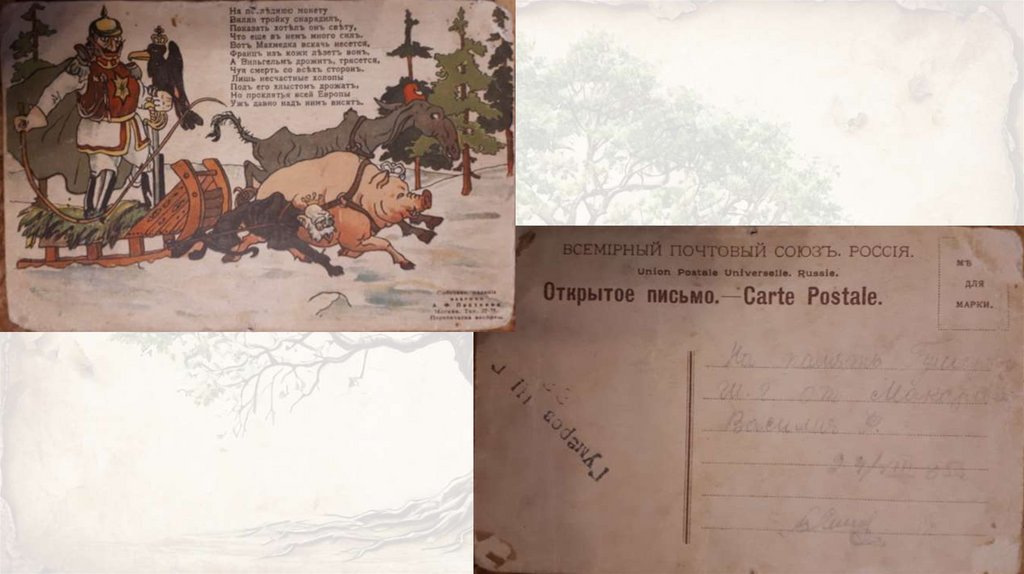 На послѣднюю монету
Вилли тройку снарядилъ,
Показать хотѣлъ онъ свѣту,
Что еще въ немъ много силъ.
Вотъ Махмедка вскачь несется,
Францъ изъ кожи лѣзетъ вонъ,
А Вильгельмъ дрожитъ, трясется,
Чуя смерть со всѣхъ сторонъ.
Лишь несчастные холопы
Подъ его хлыстомъ дрожатъ,
Но проклятья всей Европы
Ужъ давно надъ нимъ висятъ.
Москва. Тик.
ВСЕМІРНЫЙ ПОЧТОВЫЙ СОЮЗЪ. РОССІЯ.
Union Postale Universelle. Russie.
Открытое письмо.—Carte Postale.
МѢ
ДЛЯ
МАРКИ.
На память
Ш.Г от Макарова
Василия
Гумеров Ш Г